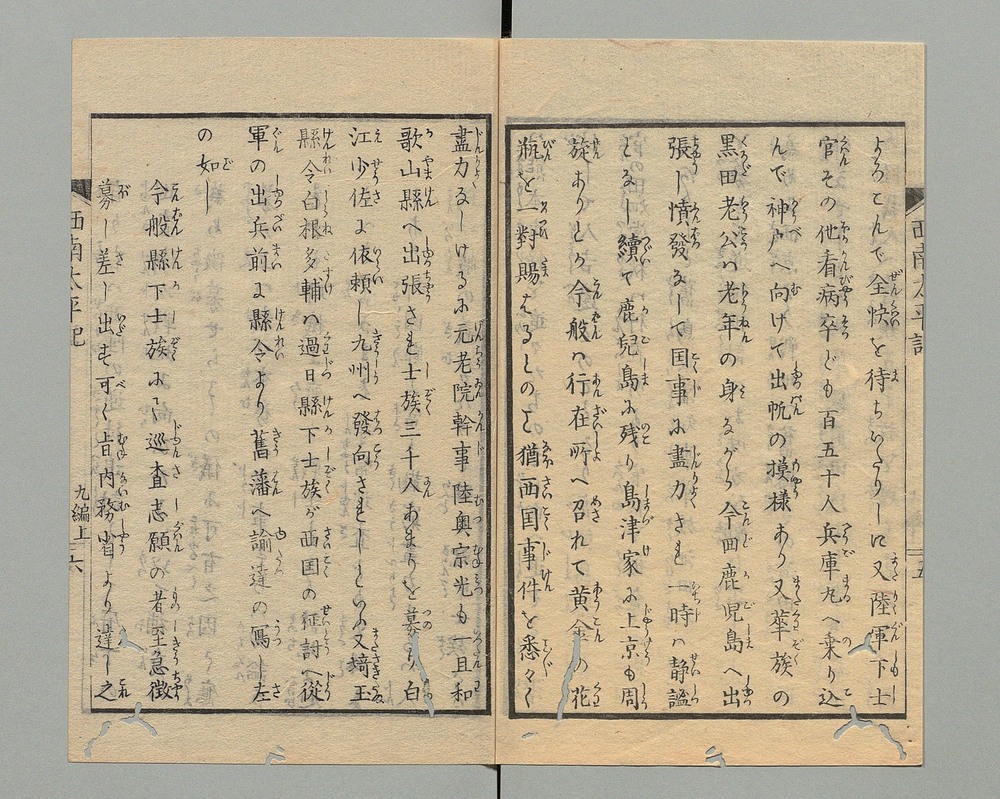 よろこんで全快を待ちゐたりしに又陸軍下士
官その他看病卒ども百五十人兵庫丸へ乗り込
んで神戸へ向けて出帆の摸様あり又華族の
黒田老公ハ老年の身ながら今回鹿児島へ出
張し憤發なして国事に盡力され一時ハ静謐
となし續て鹿兒島に残り島津家に上京も周
旋ありとか今般ハ行在所へ召れて黄金の花
瓶を一對賜はるとのこと猶西国事件を悉々く
西南太平記
五
盡力なしけるに元老院幹事陸奥宗光も一旦和
歌山縣へ出張され士族三千人あまりを募り白
江少佐に依頼し九州へ發向されしといふ又﨑玉
縣令白根多輔ハ過日縣下士族が西国の征討へ從
軍の出兵前に縣令より舊藩へ諭達の寫し左
の如し
今般縣下士族にて巡査志願の者至急徴
募し差し出す可く旨内務省より達し之
西南太平記
九編上
六